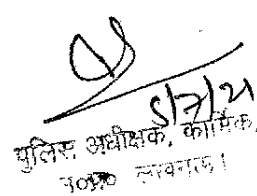 5/7/21
पुलिस अधीक्षक, कार्मिक,
उ०प्र० लखनऊ।